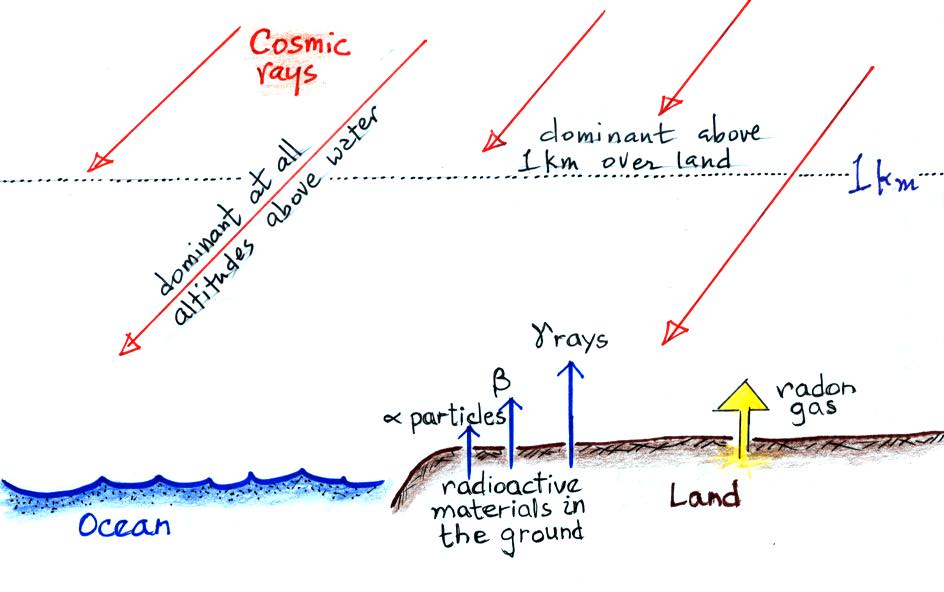 Cosmic
rays
dominant at all
altitudes above water
dominant above
1km over land
1km
γrays
β
α particles
radon
gas
radioactive
materials in
the ground
Land
Ocean